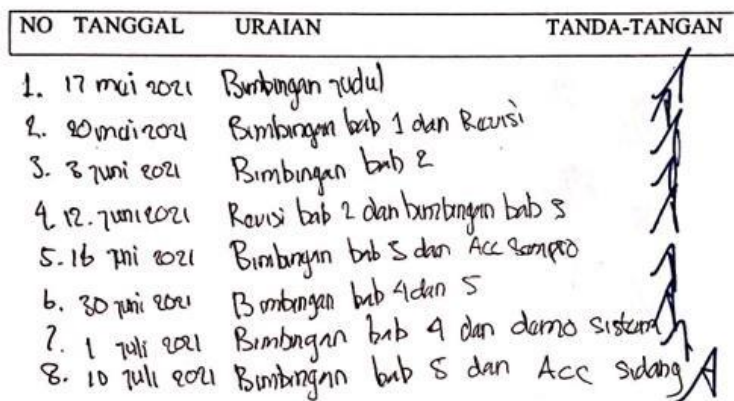 NO TANGGAL URAIAN TANDA-TANGAN
1. 17 mei 2021 Bimbingan Judul
2. 20 mei 2021 Bimbingan bab 1 dan Revisi
3. 3 Juni 2021 Bimbingan bab 2
4. 12. Juni 2021 Revisi bab 2 dan bimbingan bab 3
5. 16 Juni 2021 Bimbingan bab 3 dan Acc Sempro
6. 30 Juni 2021 Bimbingan bab 4 dan 5
7. 1 Juli 2021 Bimbingan bab 4 dan demo sistem
8. 10 Juli 2021 Bimbingan bab 5 dan Acc Sidang